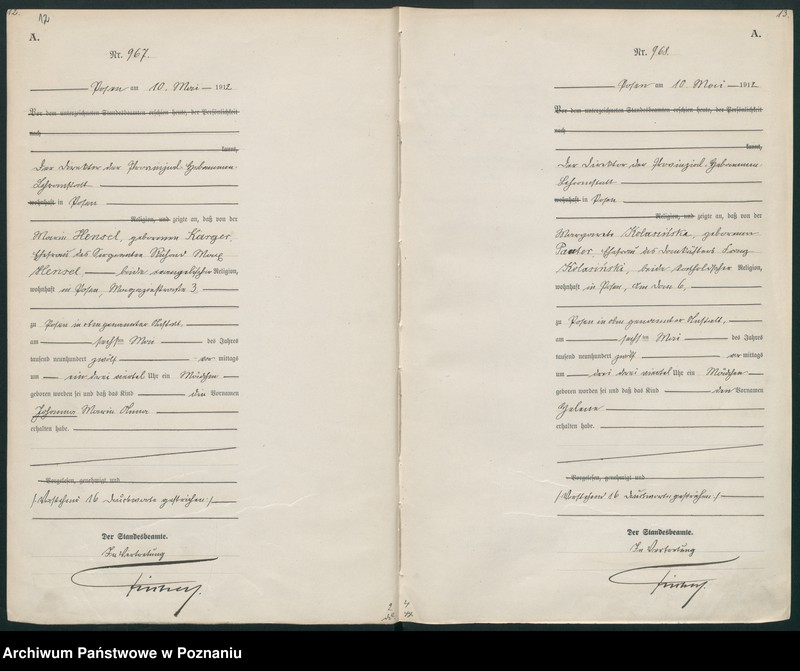 12
A.
Nr. 967.
Posen am 10. Mai 1912
Vor dem unterzeichneten Standesbeamten erschien heute, der Persönlichkeit
nach
kannt,
Der Direktor der Provinzial-Hebammen-
Lehranstalt
wohnhaft in Posen
Religion, und zeigte an, daß von der
Maria Hensel, geborenen Karger,
Ehefrau des Sergeanten Richard Max
Hensel beide evangelischer Religion,
wohnhaft in Posen, Magazinstraße 3,
zu Posen in oben genannter Anstalt,
am sechsten Mai des Jahres
tausend neunhundert zwölf vormittags
um ein drei viertel Uhr ein Mädchen
geboren worden sei und daß das Kind den Vornamen
Johanna Maria Anna
erhalten habe.
Vorgelesen, genehmigt und
/: Vorstehend 16 Druckworte gestrichen :/
Der Standesbeamte.
In Vertretung
13.
A.
Nr. 968
Posen am 10. Mai 1912
Vor dem unterzeichneten Standesbeamten erschien heute, der Persönlichkeit
nach
kannt,
Der Direktor der Provinzial-Hebammen-
Lehranstalt
wohnhaft in Posen
Religion, und zeigte an, daß von der
Margarete Kolasińska, geborenen
Ehefrau des Domküsters Franz
Kolasiński, beide katholischer Religion,
wohnhaft in Posen, Am Dom 6,
zu Posen in oben genannter Anstalt,
am sechsten Mai des Jahres
tausend neunhundert zwölf vormittags
um drei drei viertel Uhr ein Mädchen
geboren worden sei und daß das Kind den Vornamen
Helene
erhalten habe.
Vorgelesen, genehmigt und
/: Vorstehend 16 Druckworte gestrichen :/
Der Standesbeamte.
In Vertretung
Archiwum Państwowe w Poznaniu